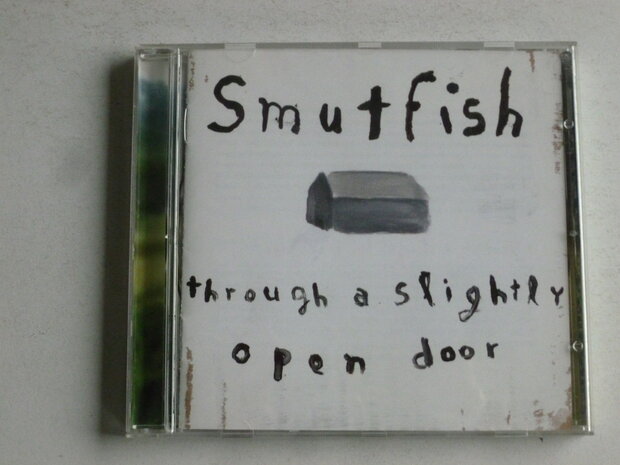 Smutfish
through a slightly
open door